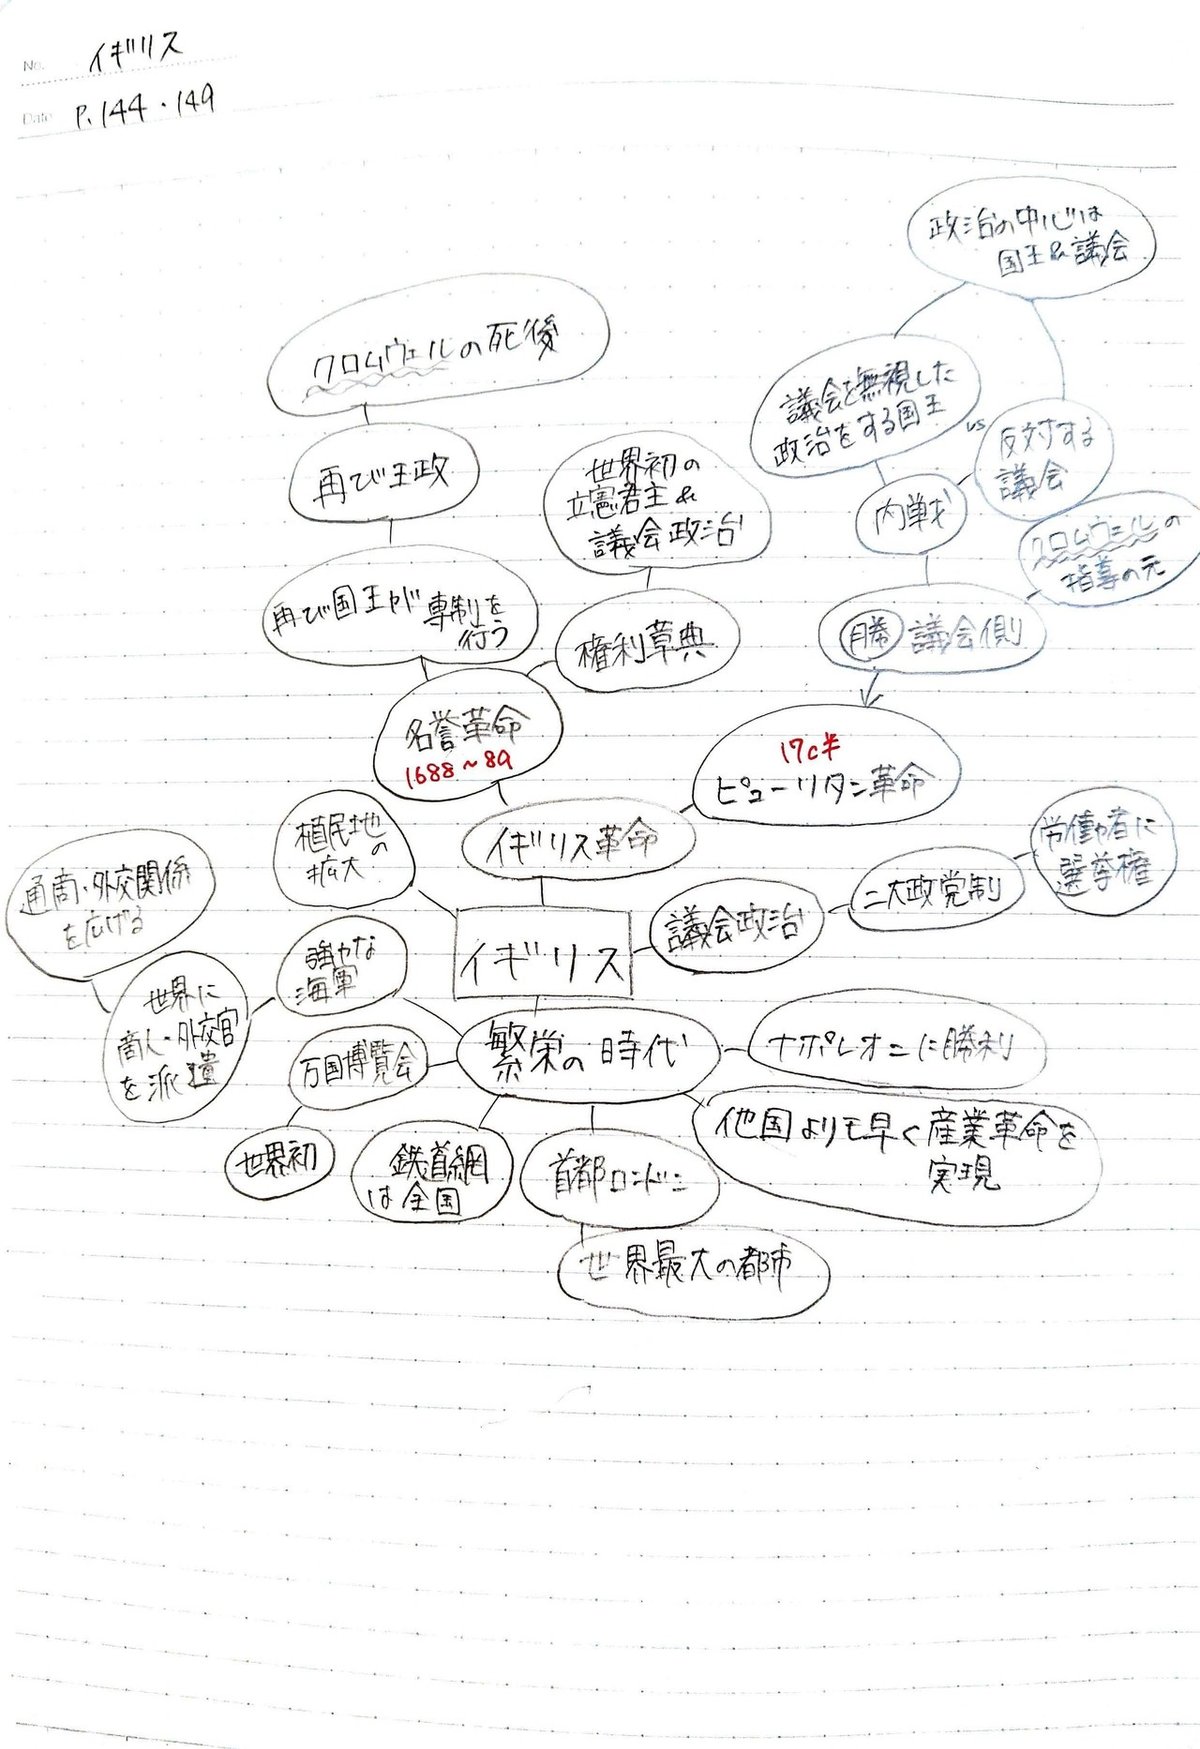 No. イギリス
Date P.144・149
政治の中心は
国王&議会
クロムウェルの死後
議会を無視した
政治をする国王
vs
反対する
議会
再び王政
世界初の
立憲君主&
議会政治
内戦
クロムウェルの
指導の元
再び国王が専制を
行う
権利章典
勝 議会側
名誉革命
1688~89
17c半
ピューリタン革命
植民地の
拡大
イギリス革命
労働者に
選挙権
通商・外交関係
を広げる
二大政党制
議会政治
イギリス
強力な
海軍
世界に
商人・外交官
を派遣
繁栄の時代
ナポレオンに勝利
万国博覧会
他国よりも早く産業革命を
実現
世界初
鉄道網
は全国
首都ロンドン
世界最大の都市